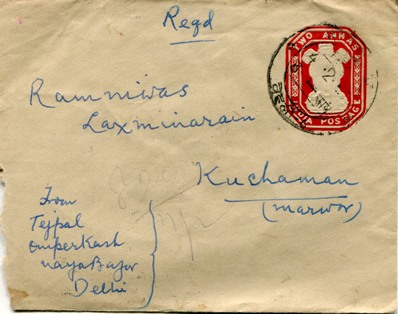 Regd
TWO ANNAS
INDIA POSTAGE
Ramniwas
Laxminarain
Kuchaman
(marwor)
From
Tejpal
omperkash
naya Bajor
Delhi